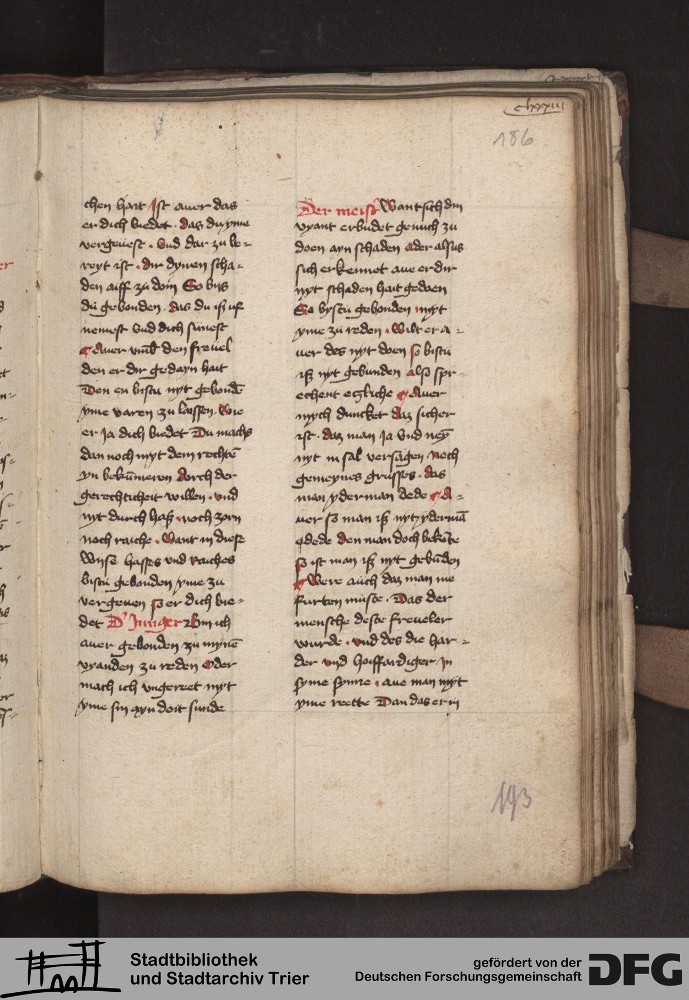 clxxxiij
186
chen hait Ist auer das
er dich biedet das du yme
vergeuest vnd dar zu be-
reyt ist dir dynen scha-
den aiff zu doin So bys
du gebonden das du in uff
nemest vnd dich sunest
Auer vmb den freuel
den er dir gedayn hait
Den en bistu nyt gebonde
yme varen zu laissen Wie
er Ja dich biedet Du machs
dan noch myt dem rechte
yn bekumeren dorch der
gerechticheit willen vnd
nyt durch haß noch zorn
noch raiche Want in diese
wise hasses vnd raiches
bistu gebonden yme zu
vergeuen so er dich bie-
det D' Junger Bin ich
auer gebonden zu myne
vyanden zu reden Oder
mach ich vngereet myt
yme sin ayn doit sunde
Der meist' Want sich din
vyant erbudet genuch zu
doen ayn schaden ader alsus
sich erkennet aue er dir
nyt schaden hait gedoen
So bystu gebonden myt
yme zu reden Wilt er a-
uer des nyt doen so bistu
iß nyt gebunden also spr-
echent etzliche Auer
mych duncket daz sicher
ist daz man ja vnd ney
nyt in sal versagen Noch
gemeynes grusses das
man yderman dede A-
uer so man iß nyt yderma
dede den man doch bekute
so ist man iß nyt gebuden
Were auch daz man me
furten muste Das der
mensche deste freueler
wurde vnd des die har-
der vnd hoiffardiger in
syme synne aue man myt
yme reette Dan das er in
193
Stadtbibliothek
und Stadtarchiv Trier
gefördert von der
Deutschen Forschungsgemeinschaft
DFG